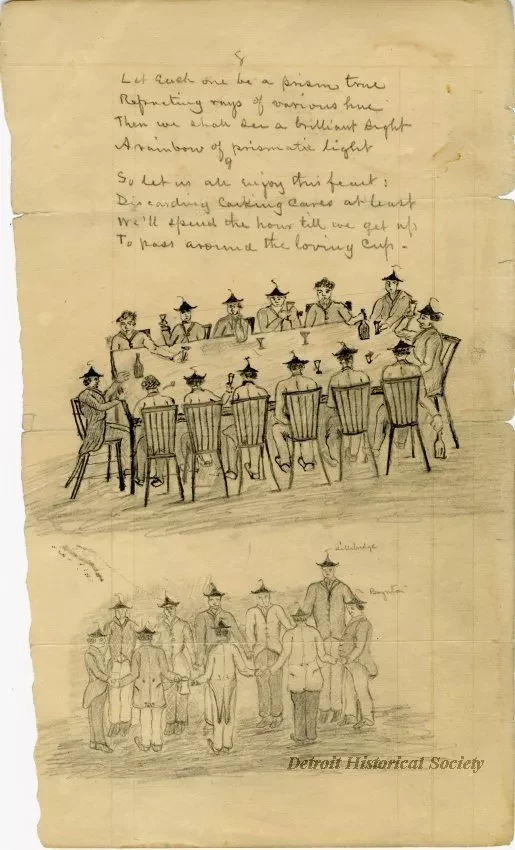 8
Let Each one be a prism true
Refracting rays of various hue
Then we shall see a brilliant Sight
A rainbow of prismatic light
9
So let us all enjoy this feast:
Discarding Carking Cares at least
We'll spend the hour till we get up
To pass around the loving Cup -
Lillibridge
Boynton
Detroit Historical Society